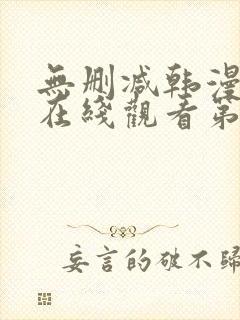 無删减韩漫
在綫觀看第
妄言的破不歸